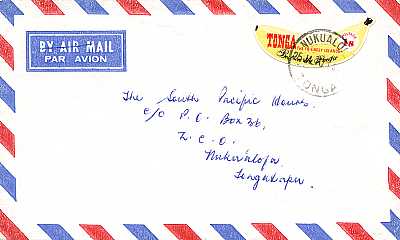 BY AIR MAIL
PAR AVION
TONGA
NUKUALOFA
TONGA
The South Pacific
c/o P.O. Box 36,
Nuku'alofa
Tongatapu.